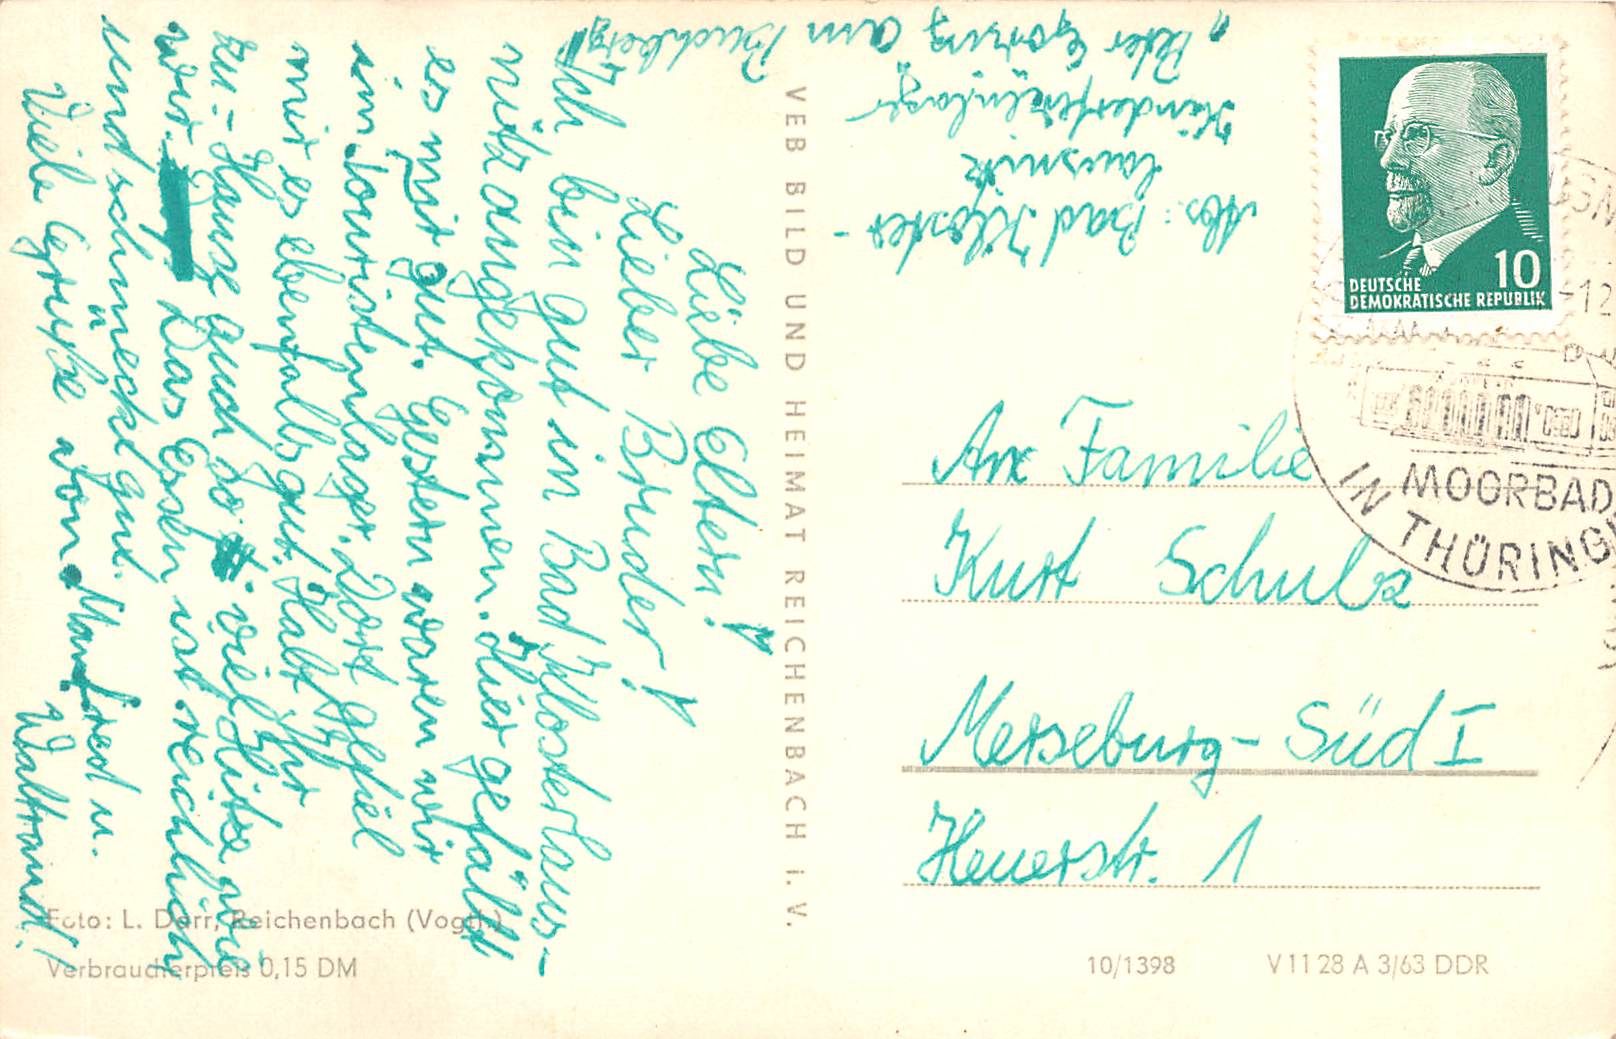 Liebe Eltern!
Lieber Bruder!
Ich bin gut in Bad Klosterlaus-
nitz angekommen. Hier gefällt
es mir gut. Gestern waren wir
im Touristenlager. Dort gefiel
mir es ebenfalls gut. Habt Ihr
zu-Hause auch so viel Hitze wie
wir. Das Essen ist reichlich
und schmeckt gut.
Viele Grüße von Manfred u.
Waltraud!
Abs: Bad Kloster-
lausnitz
Kinderferienlager
"Peter Göring am Buchberg"
VEB BILD UND HEIMAT REICHENBACH i. V.
DEUTSCHE
DEMOKRATISCHE REPUBLIK
10
MOORBAD
IN THÜRING
An Familie
Kurt Schulz
Merseburg-Süd I
Heuerstr. 1
Foto: L. Dörr, Reichenbach (Vogtl.)
Verbraucherpreis 0,15 DM
10/1398
V 11 28 A 3/63 DDR